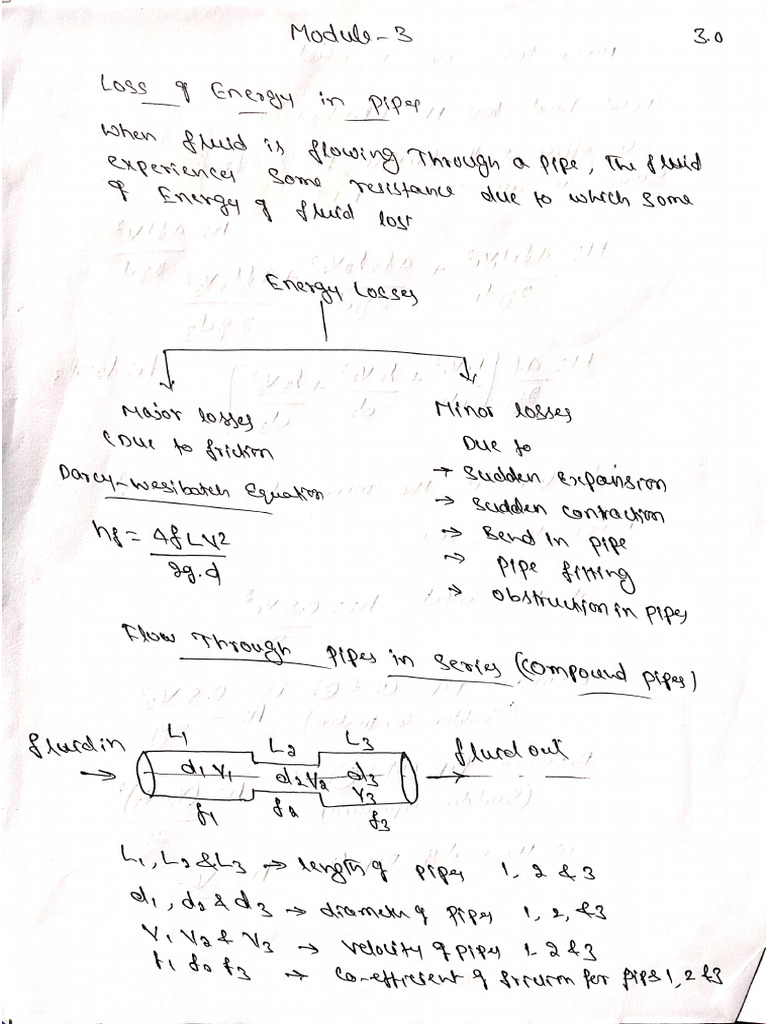 Module-3
3.0
Loss of Energy in pipes
When fluid is flowing Through a pipe, The fluid
experiences some resistance due to which some
of Energy of fluid lost
Energy Losses
Major losses
(Due to friction
Darcy-Wesibatch Equation
hf = 4fLV²
2g.d
Minor losses
Due to
→ Sudden expansion
→ Sudden contraction
→ Bend in pipe
→ pipe fitting
→ obstruction in pipes
Flow Through pipes in series (compound pipes)
fluid in →
L1 L2 L3
d1 V1 d2 V2 d3
V3
f1 f2 f3
→ fluid out
L1, L2 & L3 → length of pipes 1, 2 & 3
d1, d2 & d3 → diameter of pipes 1, 2, & 3
V1 V2 & V3 → velocity of pipes 1, 2 & 3
f1 f2 f3 → co-efficient of friction for pipes 1, 2 & 3